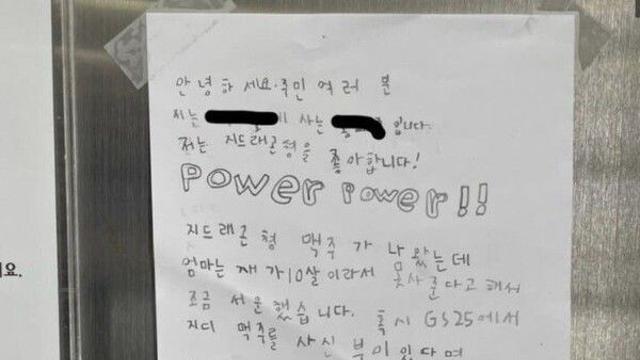 안녕하세요. 주민 여러 분
저는 에 사는 입니다.
저는 지드래곤형을 좋아합니다!
POWER POWER!!
지드래곤 형 맥주가 나왔는데
엄마는 재가 10살이라서 못사준다고 해서
조금 서운했습니다. 혹시 GS25에서
지디 맥주를 사신 분이 있다며
요.